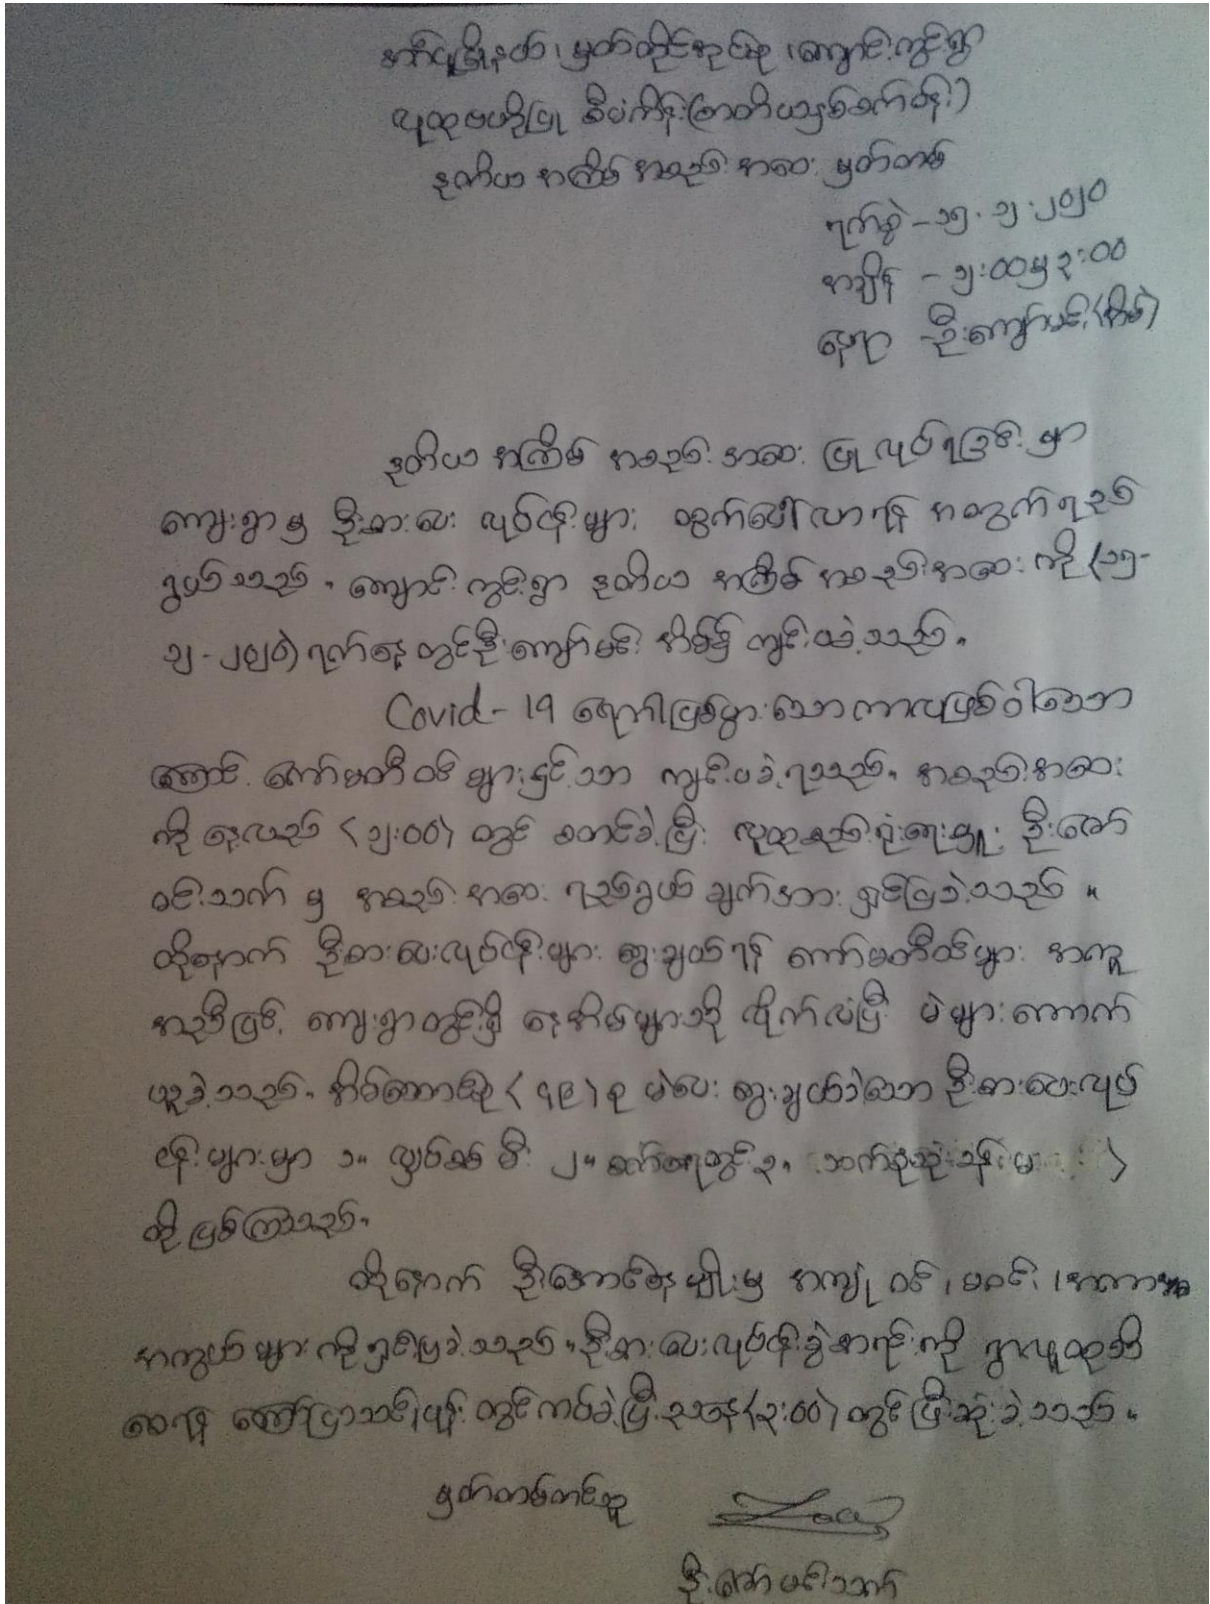 မြို့နယ်၊ မှတ်တိုင်အုပ်စု၊ ကျောင်းကွင်းရွာ
လူထုဗဟိုပြု စီမံကိန်း (တတိယနှစ်စက်ဝန်း)
ဒုတိယ အကြိမ် အစည်း အဝေး မှတ်တမ်း
ရက်စွဲ - ၁၅.၁၂.၂၀၂၀
အချိန် - ၁၂:၀၀မှ ၃:၀၀
နေရာ - ဦးကျော်မင်း(အိမ်)
ဒုတိယ အကြိမ် အစည်း အဝေး ပြုလုပ်ရခြင်း မှာ
ကျေးရွာမှ ဦးစားပေး လုပ်ငန်းများ ထွက်ပေါ်လာရန် အတွက် ရည်
ရွယ်သည်။ ကျောင်းကွင်းရွာ ဒုတိယ အကြိမ် အစည်းအဝေး ကို (၁၅-
၁၂-၂၀၂၀) ရက်နေ့ တွင် ဦးကျော်မင်း အိမ်၌ ကျင်းပခဲ့သည်။
Covid-19 ရောဂါဖြစ်ပွားသော ကာလဖြစ်ပါသော
ကြောင့် ကော်မတီ ဝင် များနှင့် သာ ကျင်းပခဲ့ရသည်။ အစည်းအဝေး
ကို နေ့လည် (၁၂:၀၀) တွင် စတင်ခဲ့ပြီး လူထုစည်းရုံးရေးမှူး ဦးဇော်
ဝင်းသက် မှ အစည်း အဝေး ရည်ရွယ် ချက်အား ရှင်းပြခဲ့သည်။
ထို့နောက် ဦးစားပေးလုပ်ငန်းများ ရွေးချယ်ရန် ကော်မတီဝင်များ အကူ
အညီဖြင့် ကျေးရွာတွင်ရှိ နေအိမ်များသို့ လိုက်လံပြီး မဲများကောက်
ယူခဲ့သည်။ အိမ်ထောင်စု (၄၉) စု မဲပေး ရွေးချယ်ခဲ့သော ဦးစားပေးလုပ်
ငန်းများမှာ ၁။ လျှပ်စစ် မီး ၂။ စက်ရေတွင်း ၃။
တို့ဖြစ်ကြသည်။
ထို့နောက် ဦးအောင်နေမျိုးမှ အကျုံး ဝင်၊ မဝင်၊ အကာ
အကွယ်များကို ရှင်းပြခဲ့သည်။ ဦးစားပေးလုပ်ငန်းခွဲစာရင်းကို ရွာလူထုသိ
စေရန် ကြော်ငြာသင်ပုန်း တွင် ကပ်ခဲ့ပြီး ညနေ(၃:၀၀) တွင် ပြီးဆုံးခဲ့သည်။
မှတ်တမ်းတင်သူ
ဦးဇော်ဝင်းသက်